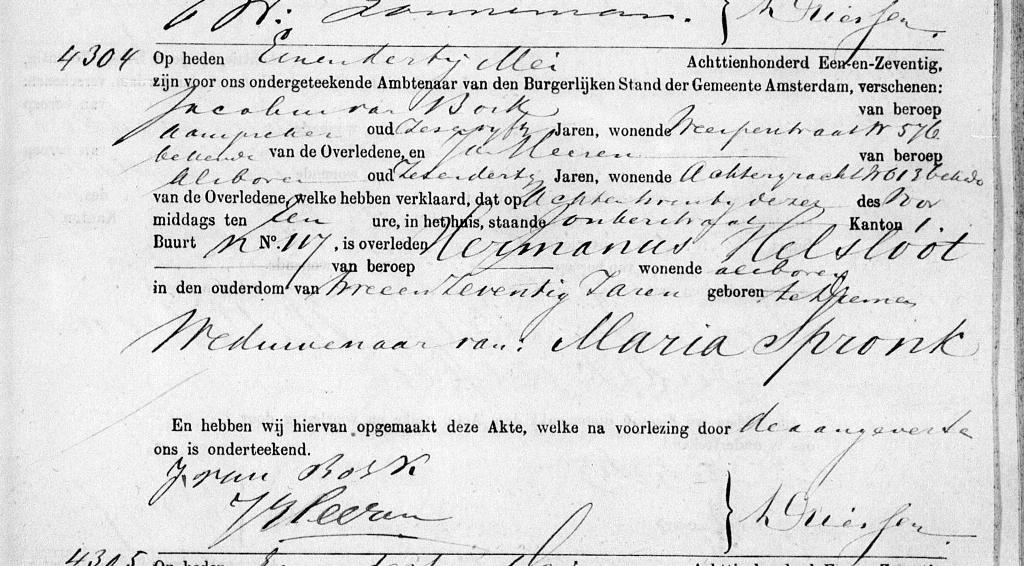 Zonneman. } A Driessen.
4304 Op heden Eenendertig Mei Achttienhonderd Een-en-Zeventig,
zijn voor ons ondergeteekende Ambtenaar van den Burgerlijken Stand der Gemeente Amsterdam, verschenen:
Jacobus van Bork van beroep
Aanspreker oud Jaren, wonende Weesperstraat N 576
bekende van de Overledene, en Meeren van beroep
als boven oud Jaren, wonende Achtergracht N 613 bekende
van de Overledene, welke hebben verklaard, dat op Achtentwintig dezer des Voor
middags ten Een ure, in het huis, staande Jonkerstraat Kanton 1.
Buurt N No. 117, is overleden Hermanus Helsloot
van beroep wonende alsboven
in den ouderdom van Tweeenzeventig Jaren geboren te Diemen
Weduwenaar van: Maria Spronk
En hebben wij hiervan opgemaakt deze Akte, welke na voorlezing door de aangevers en
ons is onderteekend.
J van Bork
Meeren } A Driessen.
4305 Op heden Achttienhonderd Een-en-Zeventig,